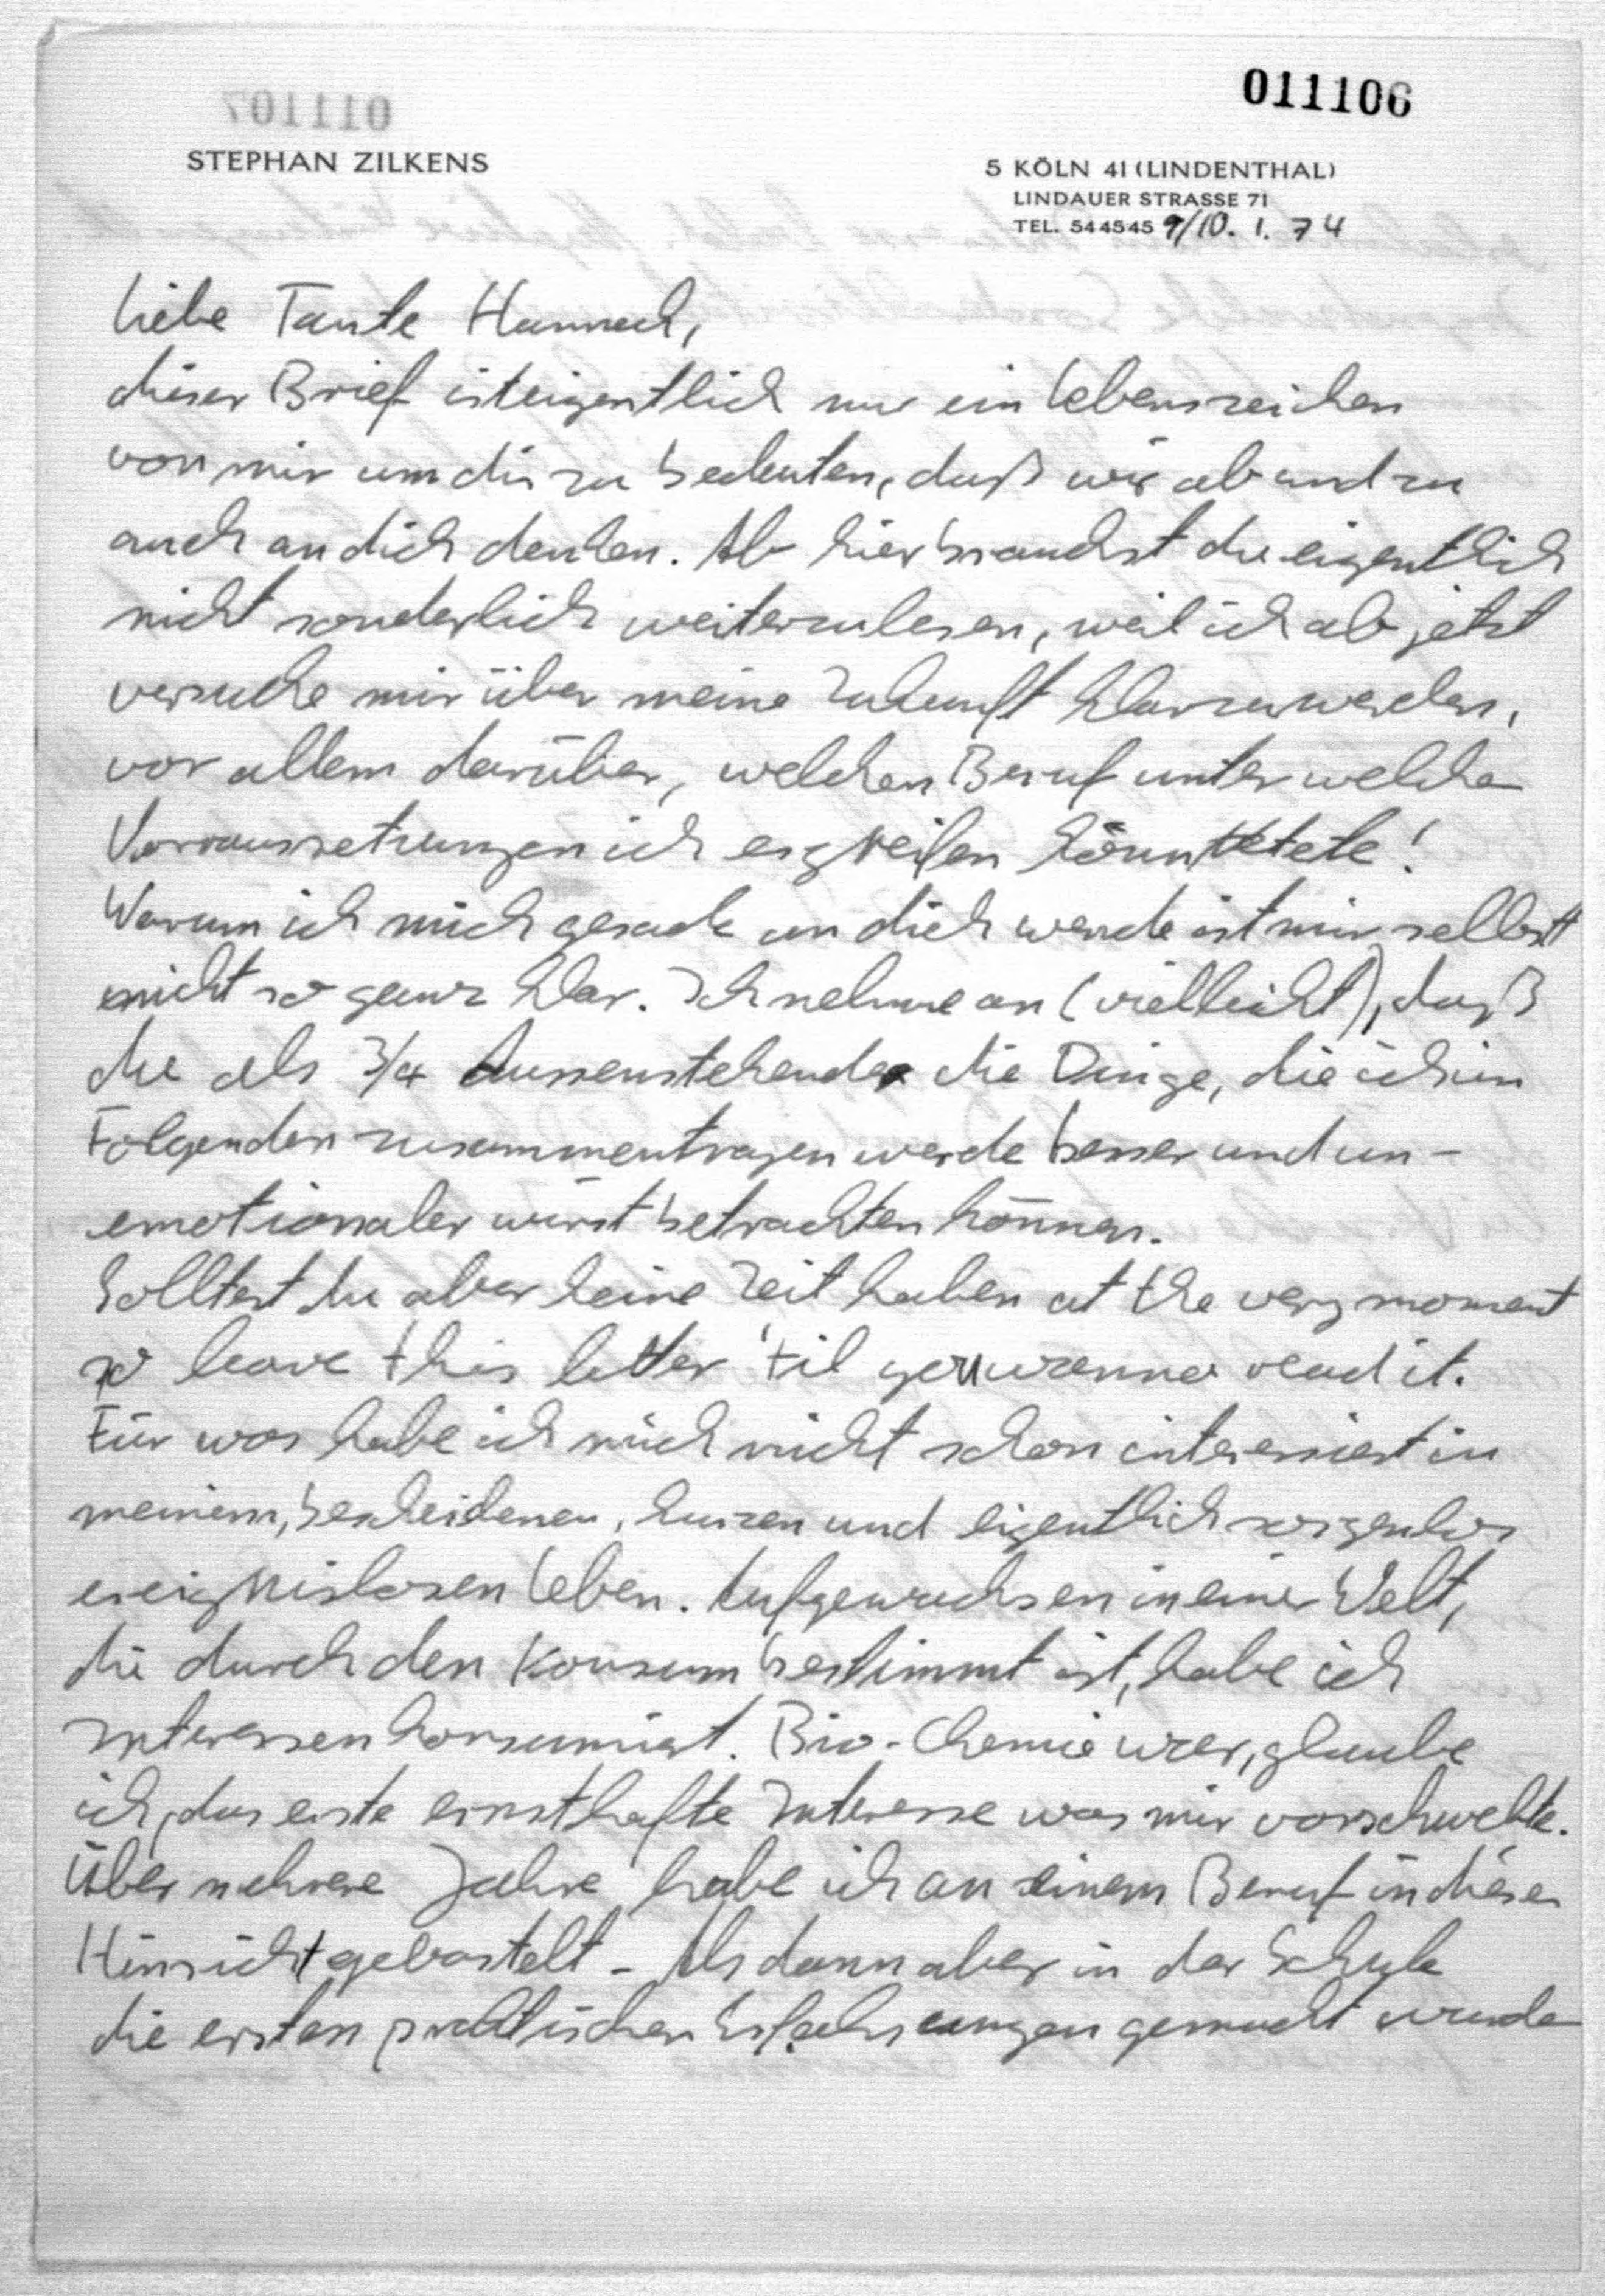 011106
011107
STEPHAN ZILKENS
5 KÖLN 41 (LINDENTHAL)
LINDAUER STRASSE 71
TEL. 544545 9/10. 1. 74
Liebe Tante Hannah,
dieser Brief ist eigentlich nur ein Lebenszeichen
von mir um dir zu bedeuten, daß wir ab und zu
auch an dich denken. Ab hier brauchst du eigentlich
nicht sonderlich weiterzulesen, weil ich ab jetzt
versuche mir über meine Zukunft klarzuwerden,
vor allem darüber, welchen Beruf unter welchen
Vorraussetzungen ich ergreifen könnte!
Warum ich mich gerade an dich wende ist mir selbst
nicht so ganz klar. Ich nehme an (vielleicht), daß
du als 3/4 Aussenstehende die Dinge, die ich im
Folgenden zusammentragen werde besser und un-
emotionaler wirst betrachten können.
Solltest du aber keine Zeit haben at the very moment
so leave this letter 'til you wanna read it.
Für was habe ich mich nicht schon interessiert in
meinem, bescheidenen, kurzen und eigentlich sorgenlos
ereignislosen Leben. Aufgewachsen in einer Welt,
die durch den Konsum bestimmt ist, habe ich
Interessen konsumiert. Bio-Chemie war, glaube
ich, das erste ernsthafte Interesse was mir vorschwebte.
Über mehrere Jahre habe ich an einem Beruf in dieser
Hinsicht gebastelt - Als dann aber in der Schule
die ersten praktischen Erfahrungen gemacht wurden